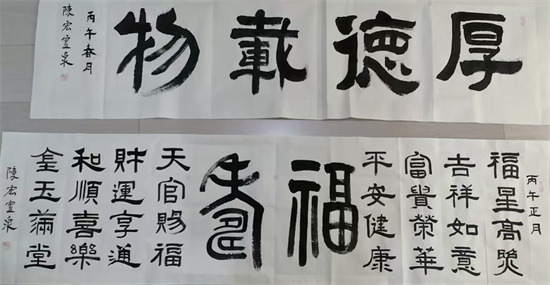 厚德載物
丙午春月
陳宏泉
丙午正月
福星高照
吉祥如意
富貴榮華
平安健康
福
壽
天官賜福
財運享通
和順喜樂
金玉滿堂
陳宏泉